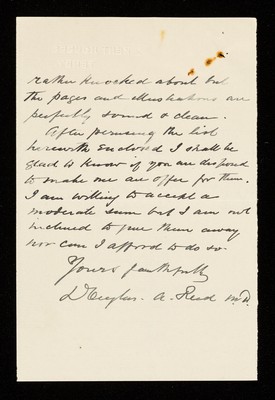 rather knocked about but
the pages and illustrations are
perfectly sound & clean.
After perusing the list
herewith enclosed I shall be
glad to know if you are disposed
to make me an offer for them.
I am willing to accept a
moderate sum but I am not
inclined to give them away
nor can I afford to do so.
Yours faithfully
Douglas. A. Reid M.D.